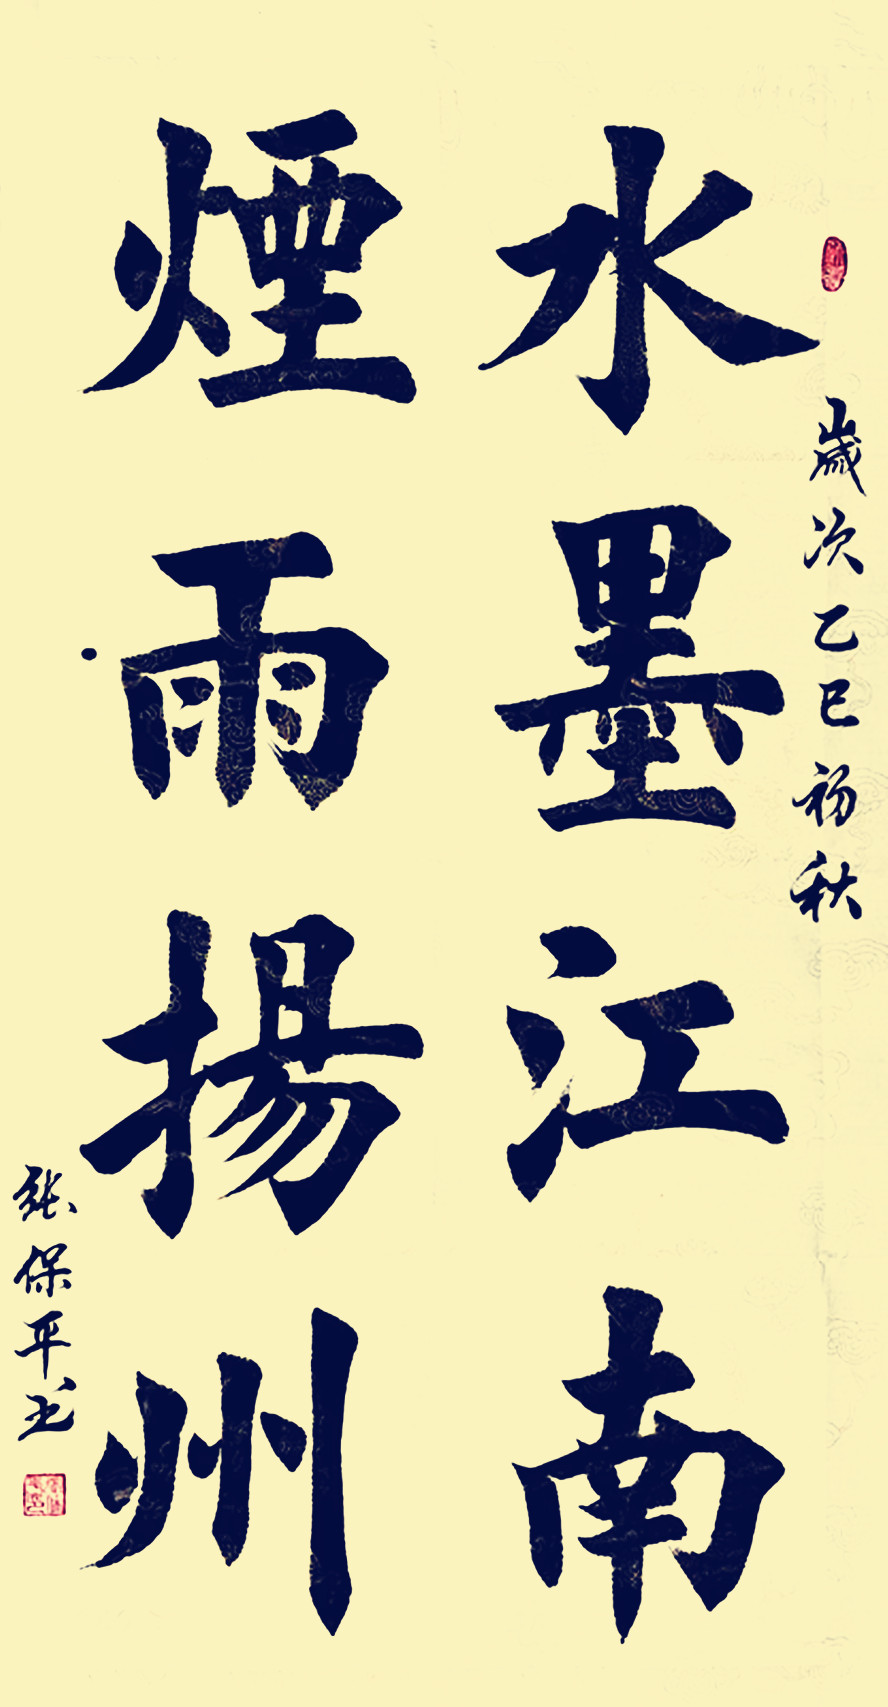 歲次乙巳初秋
水墨江南
煙雨揚州
张保平书